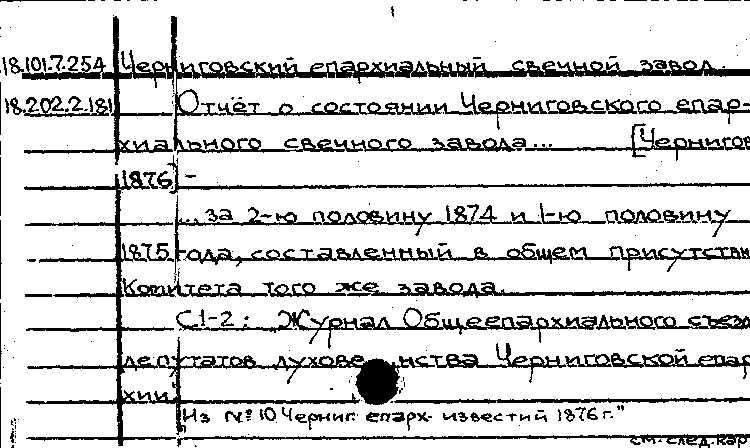 18.101.7.254 Черниговский епархиальный свечной завод.
18.202.2.181 Отчёт о состоянии Черниговского епар-
хиального свечного завода... [Чернигов
1876] -
... за 2-ю половину 1874 и 1-ю половину
1875 года, составленный в общем присутстви
Комитета того же завода.
С1-2: „Журнал Общеепархиального съезд
депутатов духове нства Черниговской епар
хии.
Из №10 Черниг. епарх. известий 1876 г."
см. след. кар